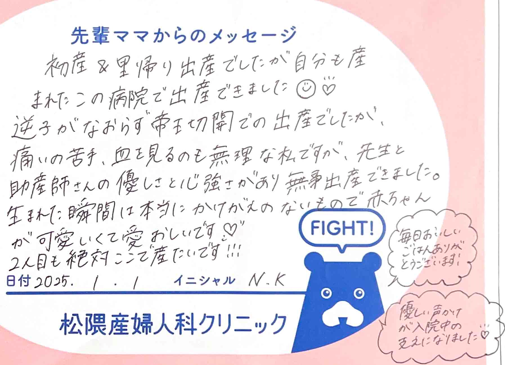 先輩ママからのメッセージ
初産&里帰り出産でしたが自分も産
まれたこの病院で出産できました☺♡
逆子がなおらず帝王切開での出産でしたが、
痛いの苦手、血を見るのも無理な私ですが、先生と
助産師さんの優しさと心強さがあり無事出産できました。
生まれた瞬間は本当にかけがえのないもので赤ちゃん
が可愛いくて愛おしいです♡
2人目も絶対ここで産たいです!!!
日付 2025. 1. 1 イニシャル N.K
FIGHT!
毎日おいしい
ごはんありが
とうございます!
優しい声かけ
が入院中の
支えになりました♡
松隈産婦人科クリニック